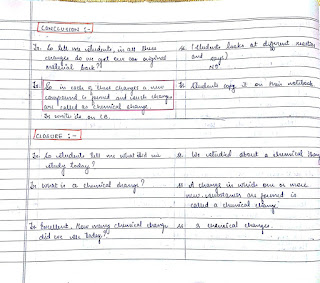 CONCLUSION :-
Tr. So tell me students, in all these
changes do we get our original
material back?
St (Students looks at different reactions
and says)
No.
Tr. So in each of these changes a new
compound is formed and such changes
are called as chemical change.
Tr writes it on C.B.
St Students copy it on their notebook
CLOSURE :-
Tr. So students tell me what did we
study today?
St. We studied about a chemical change
Tr. What is a chemical change?
St A change in which one or more
new substances are formed is
called a chemical change.
Tr. Excellent. How many chemical change
did we see today?
St 4 chemical changes.